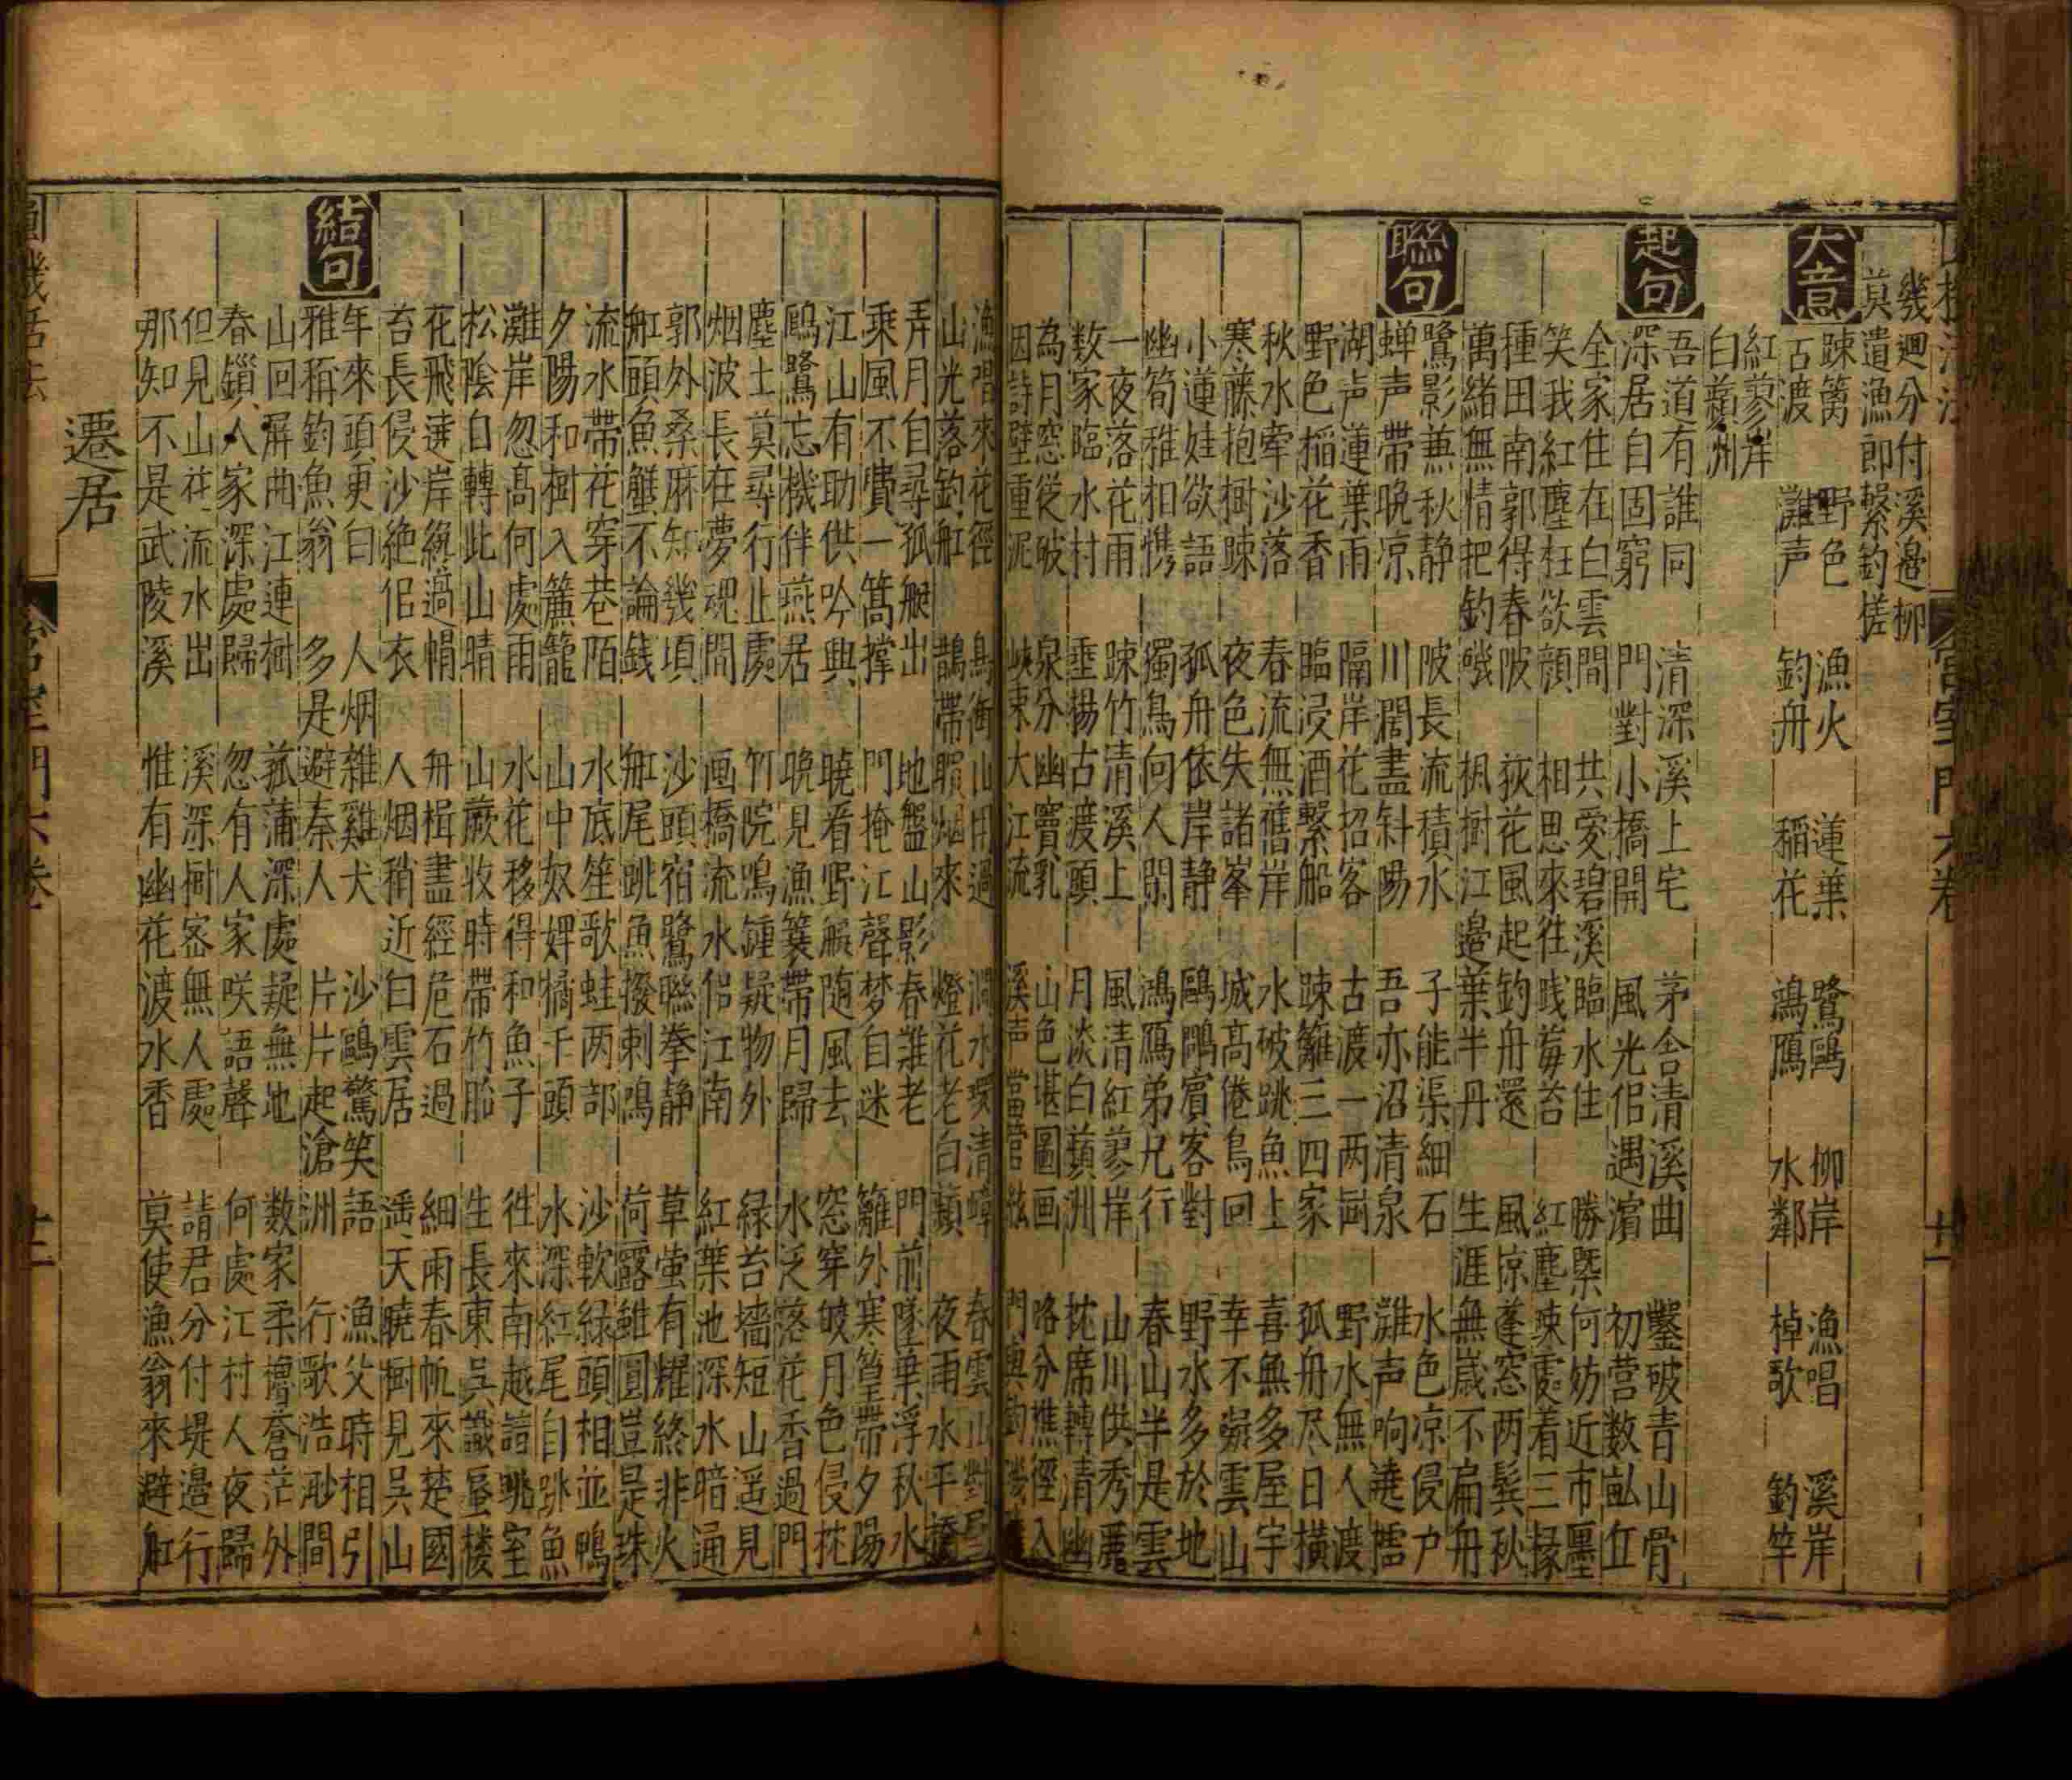 幾迴分付溪邉柳
莫遣漁郎繫釣槎
大意
踈篱 野色 漁火 蓮葉 鷺鷗 柳岸 漁唱 溪岸
古渡 灘声 釣舟 稲花 鴻鴈 水鄰 棹歌 釣竿
紅蓼岸
白蘋洲
起句
吾道有誰同 清深溪上宅 茅舎清溪曲 鑿破青山骨
深居自固窮 門對小橋開 風光侣遇濵 初营数畝丘
全家住在白雲間 共愛碧溪臨水住 勝槩何妨近市廛
笑我紅塵枉欲顔 相思來徃践苺苔 紅塵踈處着三椽
種田南郭得春陂 荻花風起釣舟還 風凉蓬窓两鬂秋
萬緒無情把釣磯 枫樹江邉葉半丹 生涯無嵗不扁舟
聯句
鷺影兼秋静 陂長流積水 子能渠細石 水色凉侵户
蝉声带晚凉 川濶盡斜陽 吾亦沼清泉 灘声响遶檐
湖声蓮葉雨 隔岸花招客 古渡一两崗 野水無人渡
野色稲花香 臨浸酒繫船 踈籬三四家 孤舟尽日横
秋水牵沙落 春流無舊岸 水破跳魚上 喜無多屋宇
寒藤抱樹踈 夜色失諸峯 城高倦鳥回 幸不碍雲山
小蓮娃欲語 孤舟依岸静 鷗鷴賔客對 野水多於地
幽筍稚相携 獨鳥向人閑 鴻鴈弟兄行 春山半是雲
一夜落花雨 踈竹清溪上 風清紅蓼岸 山川供秀麗
数家臨水村 垂楊古渡頭 月淡白蘋洲 枕席轉清幽
為月窓従破 泉分幽竇乳 山色堪圖画 路分樵徑入
因詩壁重泥 峡束大江流 溪声當管絃 門與釣磯
居室門六卷
廿一
漁唱來花徑 鳥衝山雨過 澗水環清嶂 春雲山對
山光落釣舡 鵲帶暝烟來 燈花老白蘋 夜雨水平橋
弄月自尋孤艇出 地盤山影春難老 門前墜葉浮秋水
乘風不費一篙撑 門掩江聲梦自迷 籬外寒篁帶夕陽
江山有助供吟興 曉看野艇随風去 窓穿皎月色侵枕
鷗鷺忘機伴燕居 晚見漁簑帶月歸 水泛落花香過門
塵土莫尋行止處 竹院鳴鍾疑物外 緑苔墻短山遥見
烟波長在夢魂間 画橋流水侣江南 紅葉池深水暗通
郭外桑麻知幾頃 沙頭宿鷺聮拳静 草萤有耀終非火
舡頭魚蟹不論銭 舡尾跳魚撥剌鳴 荷露雖圓豈是珠
流水帶花穿巷陌 水底笙歌蛙两部 沙軟緑頭相並鴨
夕陽和樹入簾籠 山中奴婢橘千頭 水深紅尾自跳魚
灘岸忽高何處雨 水花移得和魚子 徃來南越諳鮡室
松陰自轉此山晴 山蕨收時帶竹胎 生長東吳識蜃楼
花飛遶岸繽過帽 舟楫盡經危石過 細雨春帆來楚國
苔長侵沙絶侣衣 人烟稍近白雲居 遥天曉樹見吳山
結句
年來頭更白 人烟雜雞犬 沙鷗驚笑語 漁父時相引
雅稱釣魚翁 多是避秦人 片片起滄洲 行歌浩渺間
山回屏曲江連樹 菰蒲深處疑無地 数家柔櫓蒼茫外
春鎖人家深處歸 忽有人家咲語聲 何處江村人夜歸
但見山花流水出 溪深樹宻無人處 請君分付堤邉行
那知不是武陵溪 惟有幽花渡水香 莫使漁翁來避舡
遷居
圓機活法
居室門六卷
廿二